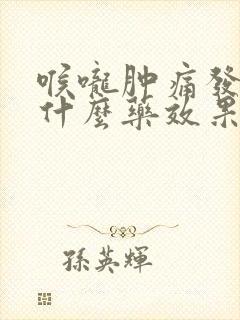 喉嚨肿痛發
什麼藥效果
孫英輝